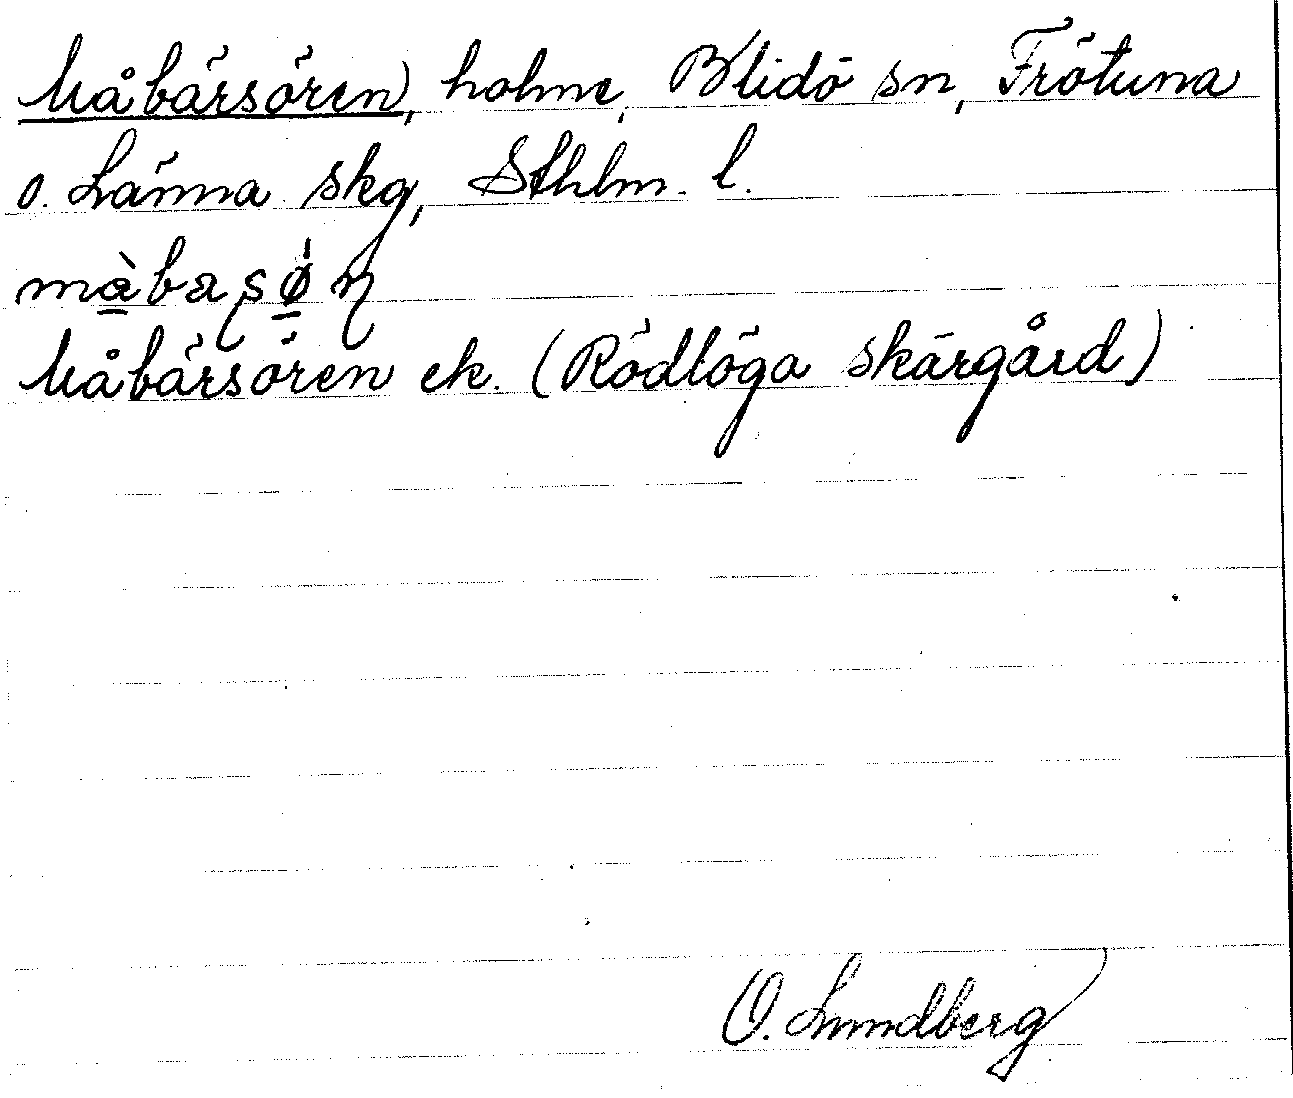 Måbärsören, holme, Blidö sn, Frötuna
o. Länna skg, Sthlm. l.
Måbärsören ek. (Rödlöga skärgård)
O. Lundberg